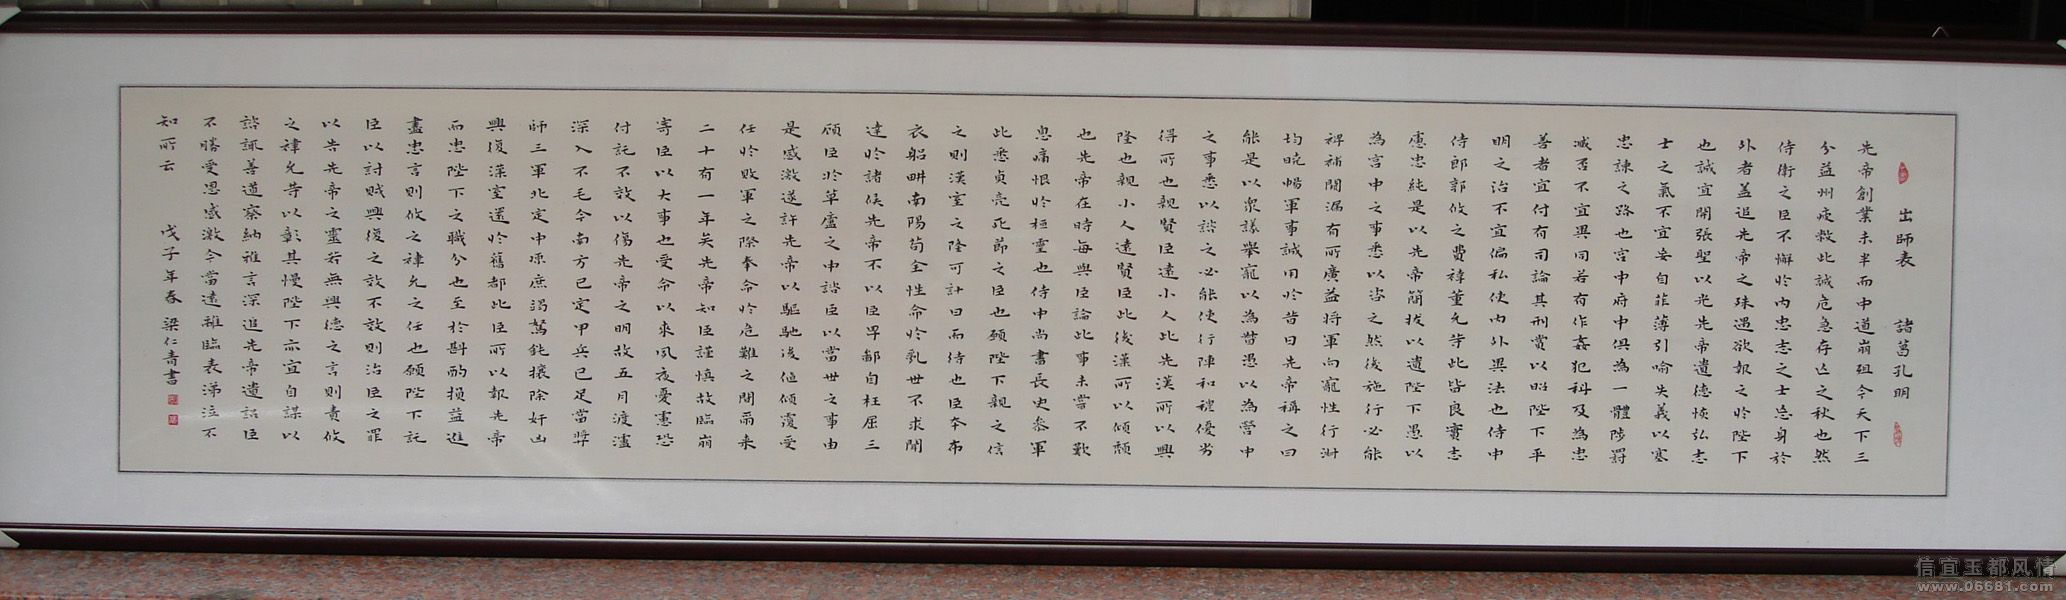 出師表 諸葛孔明
先帝創業未半而中道崩殂今天下三
分益州疲敝此誠危急存亡之秋也然
侍衛之臣不懈於內忠志之士忘身於
外者蓋追先帝之殊遇欲報之於陛下
也誠宜開張聖以光先帝遺德恢弘志
士之氣不宜妄自菲薄引喻失義以塞
忠諫之路也宮中府中俱為一體陟罰
臧否不宜異同若有作姦犯科及為忠
善者宜付有司論其刑賞以昭陛下平
明之治不宜偏私使內外異法也侍中
侍郎郭攸之費禕董允等此皆良實志
慮忠純是以先帝簡拔以遺陛下愚以
為宮中之事悉以咨之然後施行必能
裨補闕漏有所廣益將軍向寵性行淑
均曉暢軍事誠用於昔日先帝稱之曰
能是以眾議舉寵以為督愚以為營中
之事悉以諮之必能使行陣和穆優劣
得所也親賢臣遠小人此先漢所以興
隆也親小人遠賢臣此後漢所以傾頹
也先帝在時每與臣論此事未嘗不歎
息痛恨於桓靈也侍中尚書長史參軍
此悉貞亮死節之臣也願陛下親之信
之則漢室之隆可計日而待也臣本布
衣躬畊南陽苟全性命於亂世不求聞
達於諸侯先帝不以臣卑鄙自枉屈三
顧臣於草廬之中諮臣以當世之事由
是感激遂許先帝以驅馳後值傾覆受
任於敗軍之際奉命於危難之間爾來
二十有一年矣先帝知臣謹慎故臨崩
寄臣以大事也受命以來夙夜憂慮恐
付託不效以傷先帝之明故五月渡瀘
深入不毛今南方已定甲兵已足當獎
師三軍北定中原庶竭駑鈍攘除奸凶
興復漢室還於舊都此臣所以報先帝
而忠陛下之職分也至於斟酌損益進
盡忠言則攸之禕允之任也願陛下託
臣以討賊興復之效不效則治臣之罪
以告先帝之靈若無興德之言則責攸
之禕允等以彰其慢陛下亦宜自謀以
諮諏善道察納雅言深追先帝遺詔臣
不勝受恩感激今當遠離臨表涕泣不
知所云 戊子年春 梁仁青書
信宜玉都风情
www.06681.com